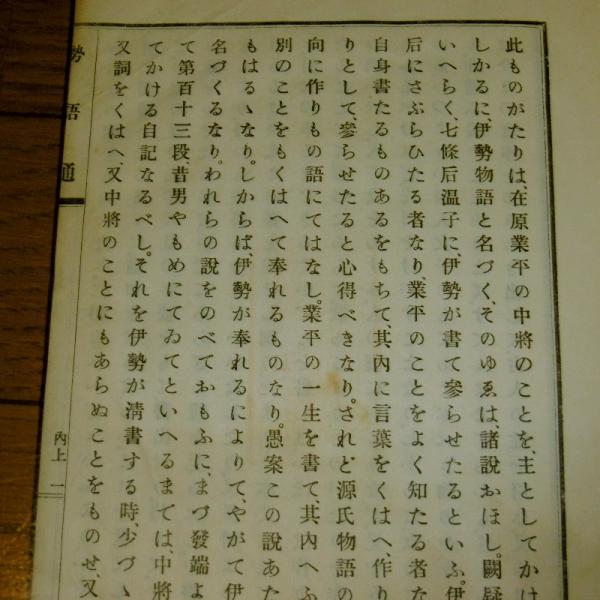 此ものがたりは、在原業平の中將のことを、主としてかけ
しかるに、伊勢物語と名づく、そのゆゑは、諸說おほし。闕疑
いへらく、七條后温子に、伊勢が書て參らせたるといふ。伊
后にさぶらひたる者なり、業平のことをよく知たる者な
自身書たるものあるをもちて、其內に言葉をくはへ、作り
りとして、參らせたると心得べきなり。されど源氏物語の
向に作りもの語にてはなし。業平の一生を書て、其內へふ
別のことをもくはへて奉れるものなり。愚案この說あた
もはるゝなり。しからば、伊勢が奉れるによりて、やがて伊
名づくるなり。われらの說をのべておもふに、まづ發端よ
て第百十三段、昔男やもめにてゐてといへるまでは、中將
てかける自記なるべし。それを伊勢が淸書する時、少づゝ
又詞をくはへ、又中將のことにもあらぬことをものせ、又
勢語通
內上 一